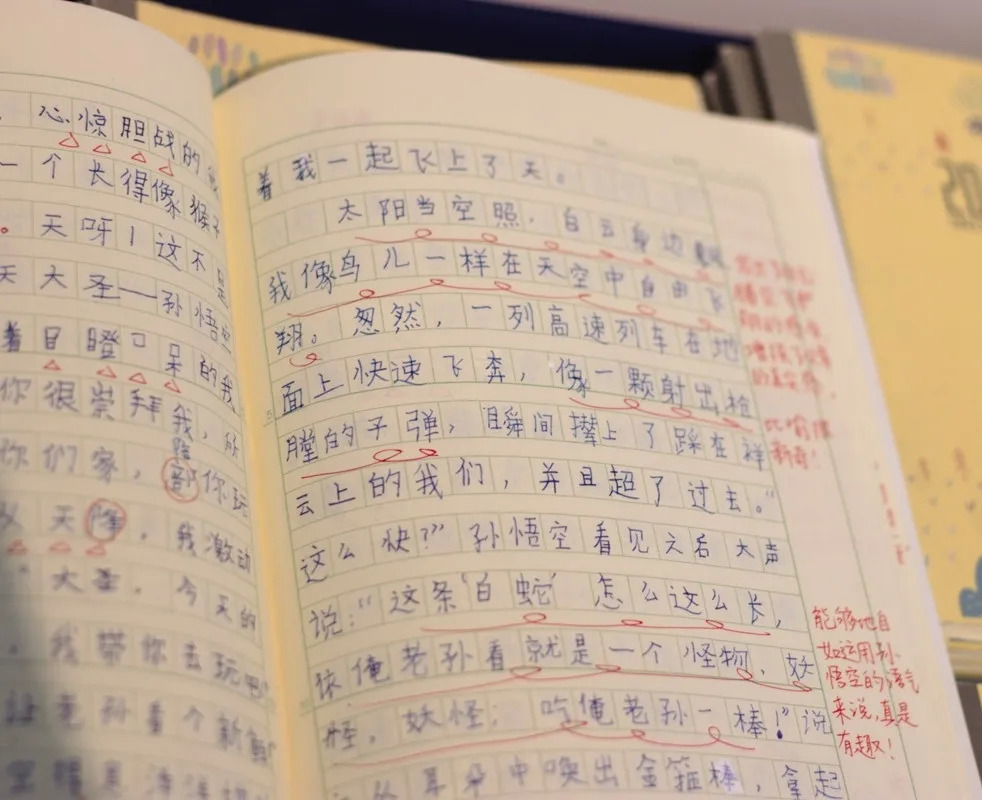 心惊胆战的
一个长得像猴子
天呀！这不是
天大圣——孙悟空
着目瞪口呆的我
你很崇拜我，所
你们家，陪你玩
天降，我激动
大圣，今天的
我带你去玩吧
让老孙看个新鲜
着我一起飞上了天。
太阳当空照，白云身边飘
我像鸟儿一样在天空中自由飞
翔。忽然，一列高速列车在地
面上快速飞奔，像一颗射出枪
膛的子弹，瞬间撵上了踩在祥
云上的我们，并且超了过去。“
这么快？”孙悟空看见之后大声
说：“这条‘白蛇’怎么这么长，
依俺老孙看就是一个怪物，妖
怪，妖怪；吃俺老孙一棒！”说
中唤出金箍棒，拿起
比喻很
新奇！
能够地自
如运用孙
悟空的语气
来说，真是
有趣！
20